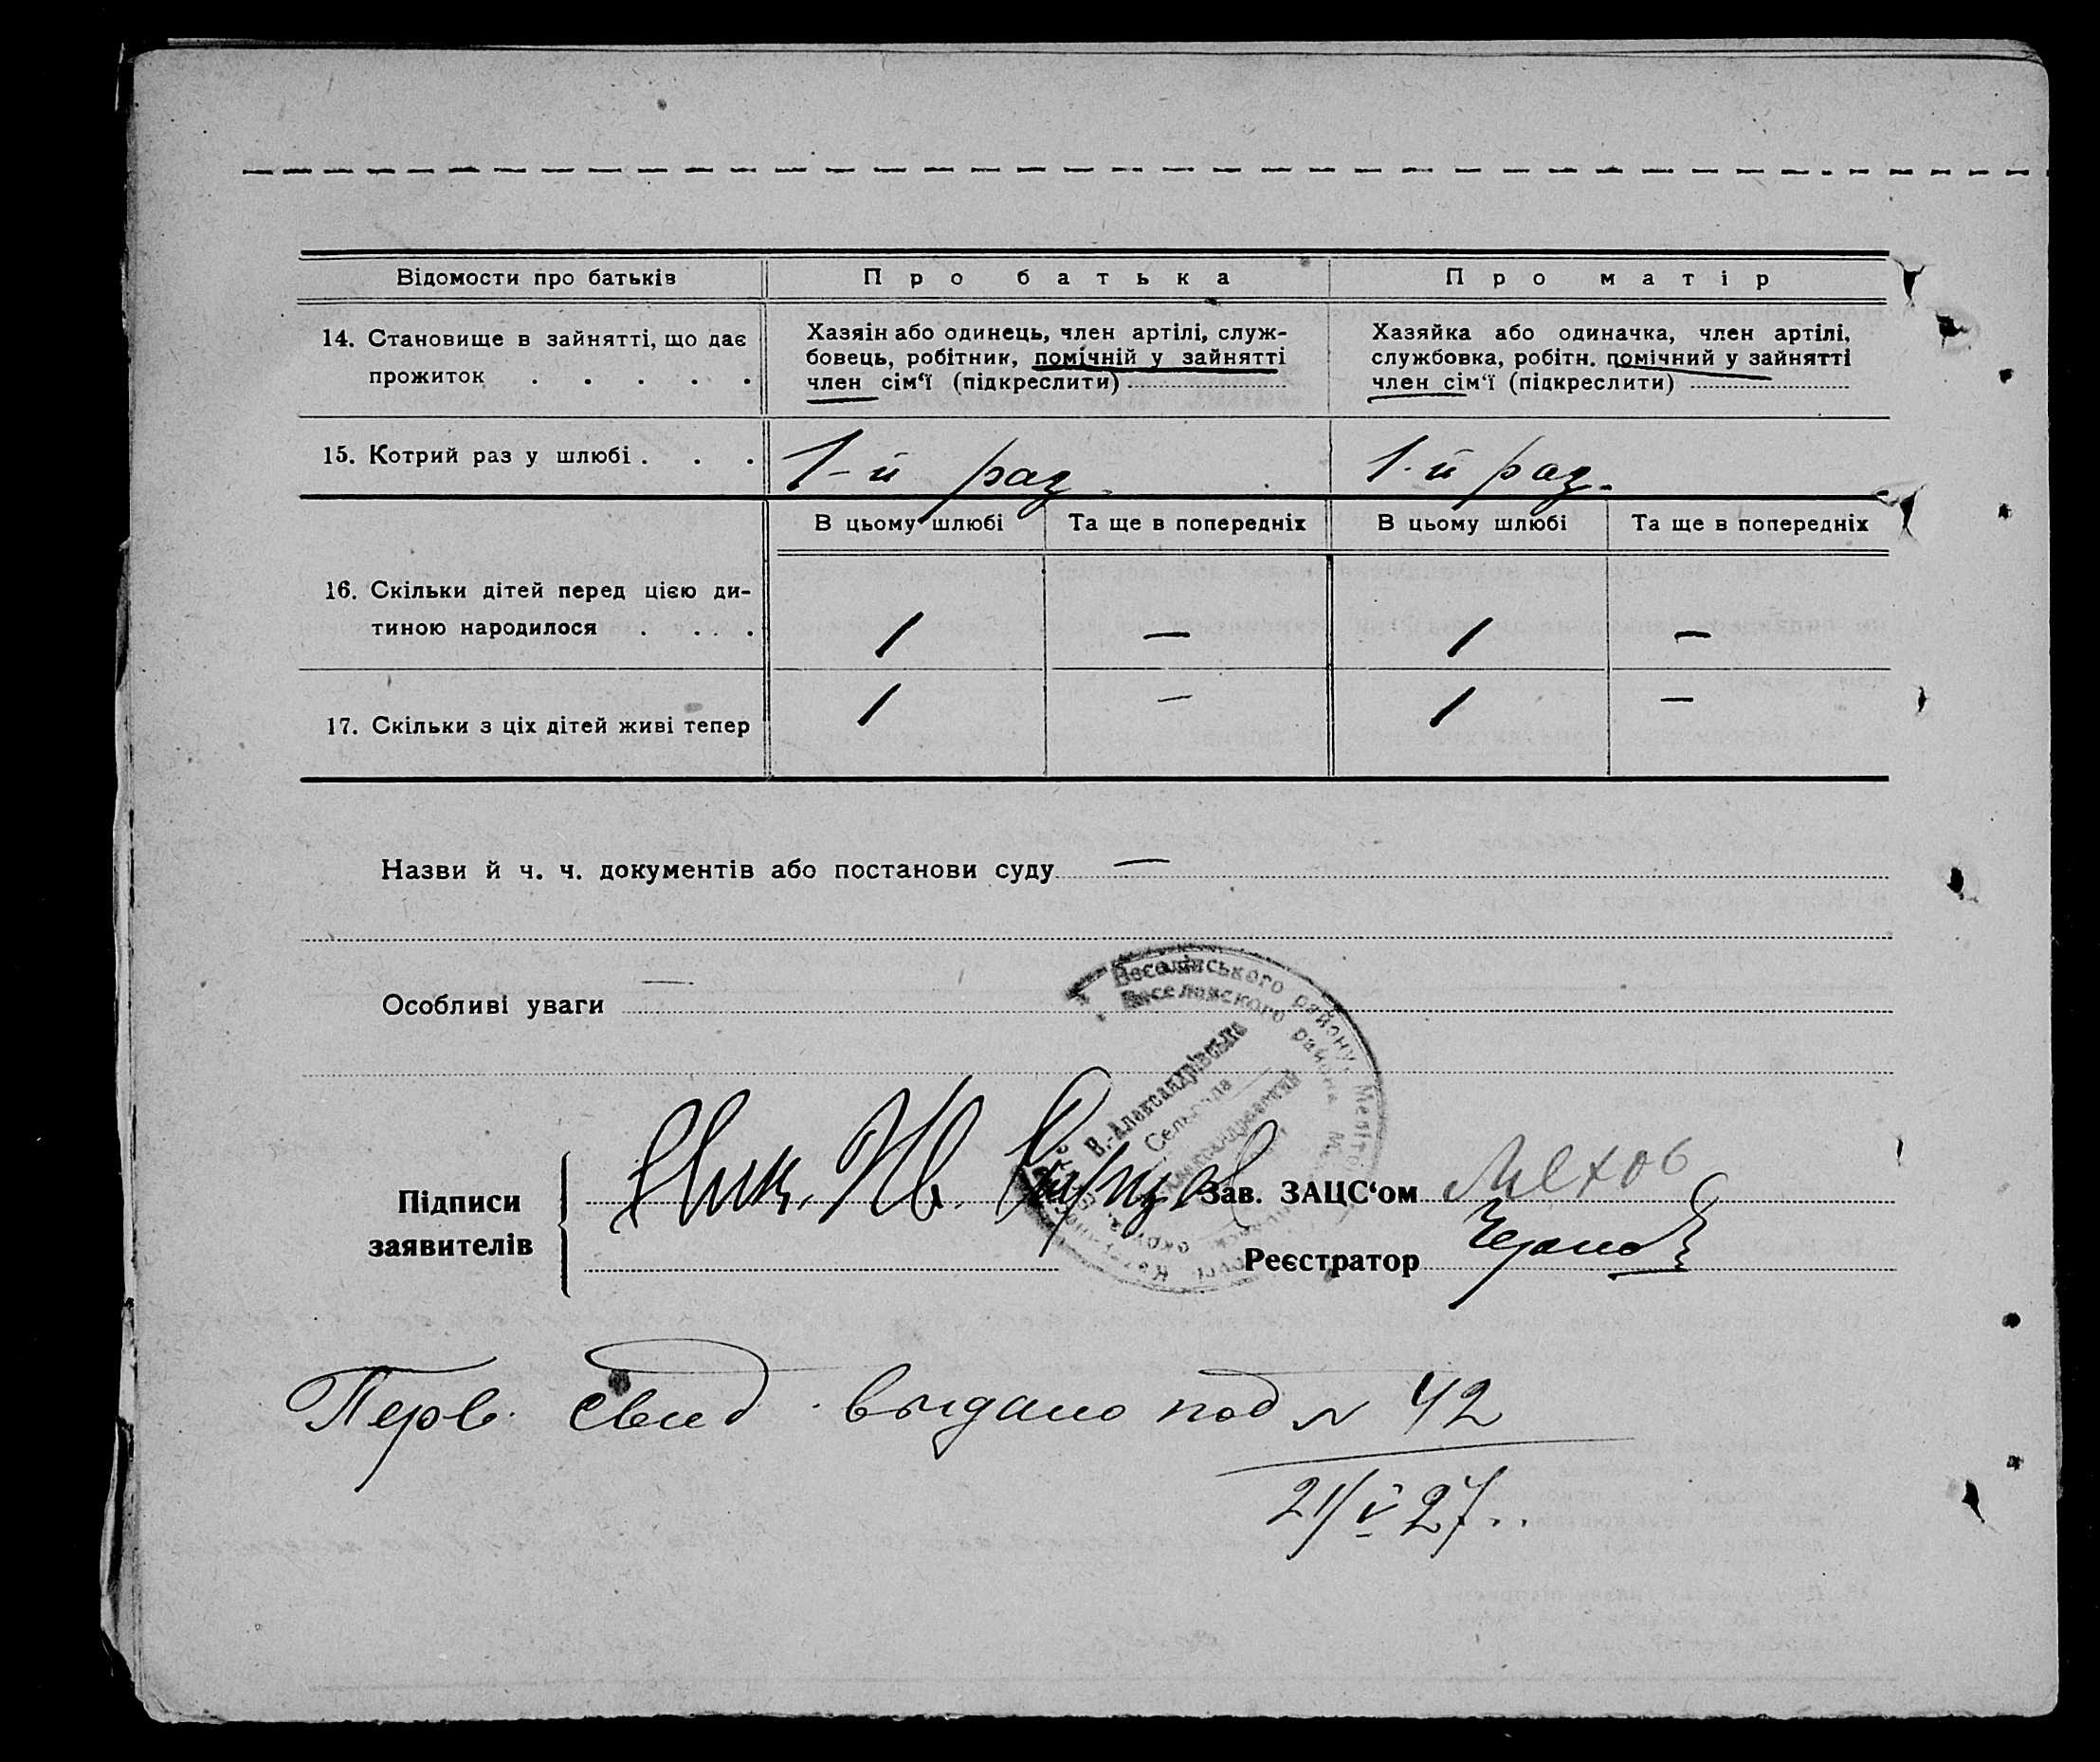 Відомости про батьків
Про батька
Про матір
14. Становище в зайнятті, що дає
прожиток . . . . .
Хазяін або одинець, член артілі, служ-
бовець, робітник, помічній у зайнятті
член сім‘ї (підкреслити)
Хазяйка або одиначка, член артілі,
службовка, робітн. помічний у зайнятті
член сім‘ї (підкреслити)
15. Котрий раз у шлюбі . . .
1-й раз.
1-й раз.
В цьому шлюбі
Та ще в попередніх
В цьому шлюбі
Та ще в попередніх
16. Скільки дітей перед цією ди-
тиною народилося . . . .
1
—
1
—
17. Скільки з ціх дітей живі тепер
1
—
1
—
Назви й ч. ч. документів або постанови суду —
Особливі уваги —
Веселівського району, Меліто
Веселовского района
В.-Александрівська
Сельрада
Підписи
заявителів
Ник. Ив.
Зав. ЗАЦС‘ом
Реєстратор
Перв. свид. выдано под N 42
21/V 27..